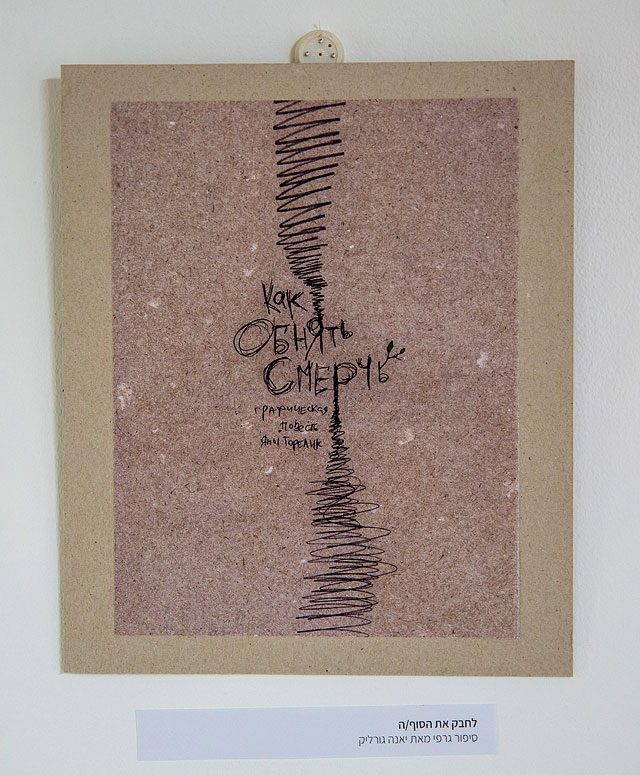 Как
Обнять
Смерчь
графическая
повесть
Яны Горелик
לחבק את הסוף/ה
סיפור גרפי מאת יאנה גורליק